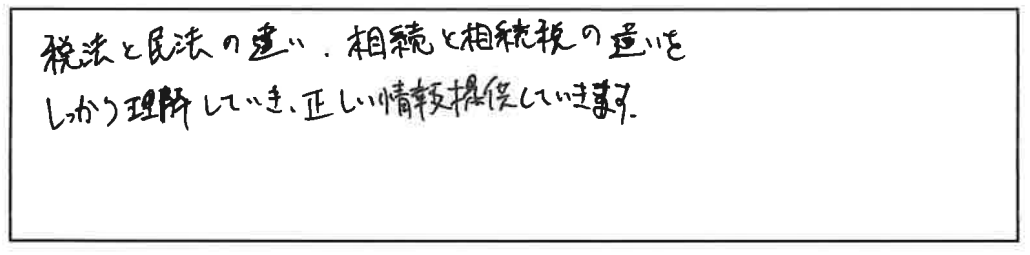 税法と民法の違い、相続と相続税の違いを
しっかり理解していき、正しい情報提供していきます。